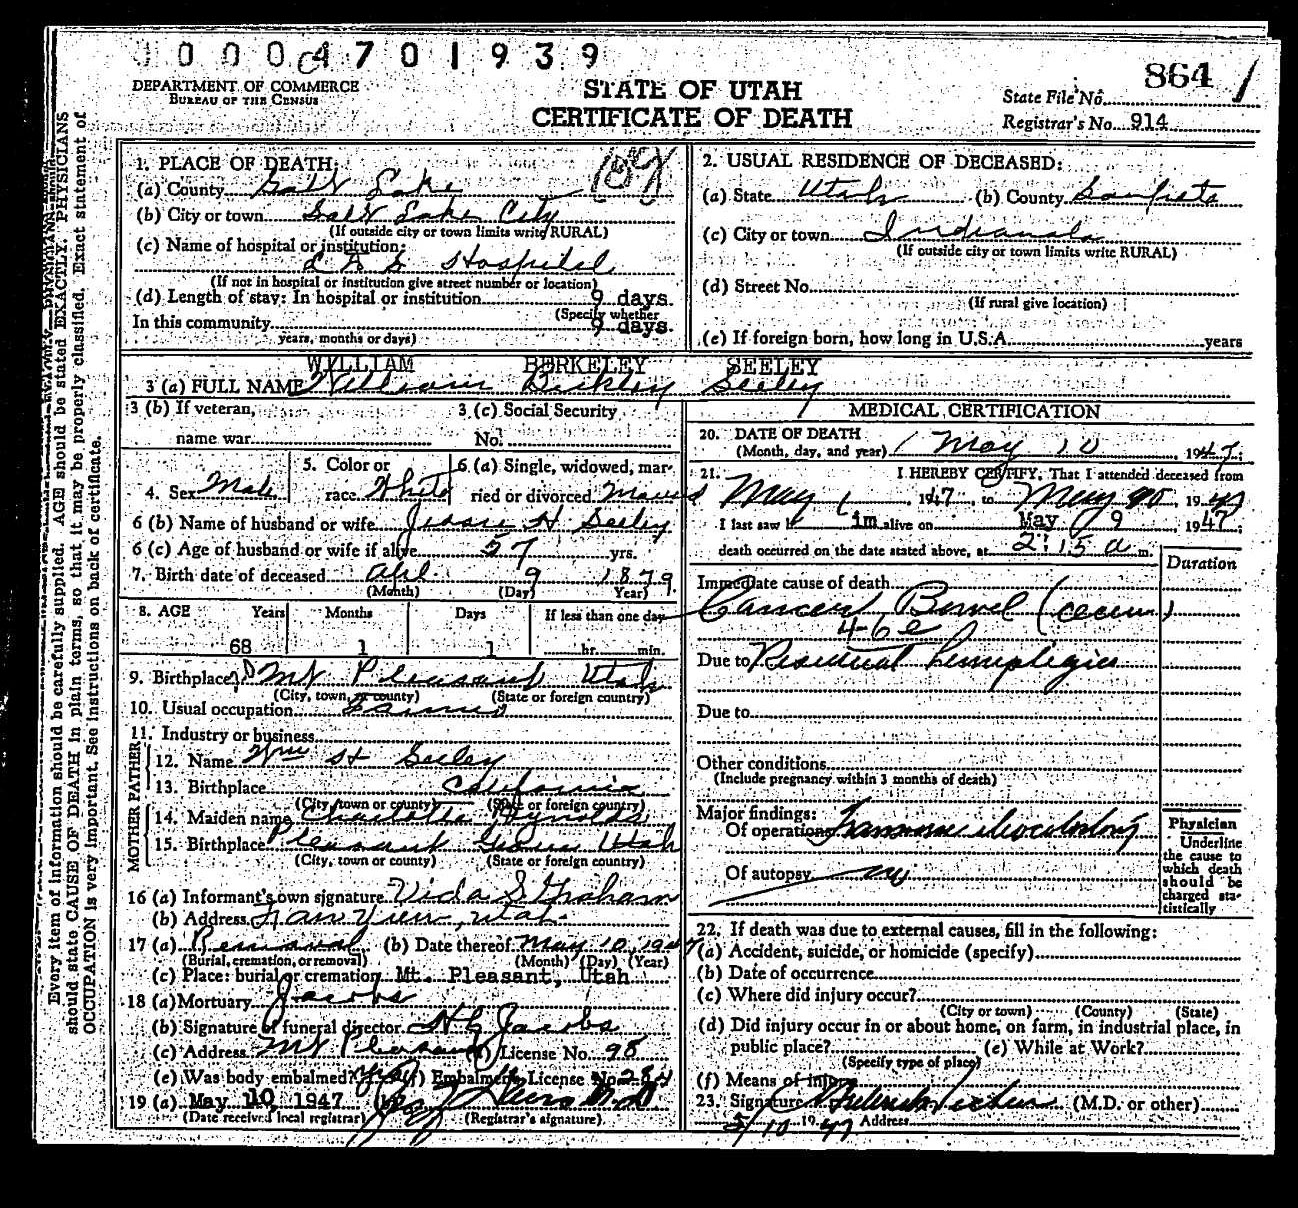 0000470 1939
DEPARTMENT OF COMMERCE
BUREAU OF THE CENSUS
STATE OF UTAH
CERTIFICATE OF DEATH
864 1
State File No.
Registrar's No. 914
Every item of information should be carefully supplied. AGE should be stated EXACTLY. PHYSICIANS
should state CAUSE OF DEATH in plain terms, so that it may be properly classified. Exact statement of
OCCUPATION is very important. See instructions on back of certificate.
1. PLACE OF DEATH:
(a) County Salt Lake
(b) City or town Salt Lake City
(If outside city or town limits write RURAL)
(c) Name of hospital or institution:
L D S Hospital
(If not in hospital or institution give street number or location)
(d) Length of stay: In hospital or institution 9 days.
(Specify whether
In this community 9 days.
years, months or days)
2. USUAL RESIDENCE OF DECEASED:
(a) State Utah (b) County Sanpete
(c) City or town Indianola
(If outside city or town limits write RURAL)
(d) Street No.
(If rural give location)
(e) If foreign born, how long in U.S.A. years
WILLIAM BERKELEY SEELEY
3 (a) FULL NAME William Berkley Seeley
3 (b) If veteran,
name war
3 (c) Social Security
No.
4. Sex Male
5. Color or
race White
6 (a) Single, widowed, mar-
ried or divorced Married
6 (b) Name of husband or wife Jessie H Seeley
6 (c) Age of husband or wife if alive 57 yrs.
7. Birth date of deceased Apl. 9 1879
(Month) (Day) Year)
8. AGE Years Months Days If less than one day
68 1 1 hr. min.
9. Birthplace Mt Pleasant Utah
(City, town, or county) (State or foreign country)
10. Usual occupation Farmer
11. Industry or business
FATHER
12. Name Wm H Seeley
13. Birthplace California
(City, town or county) (State or foreign country)
MOTHER
14. Maiden name Charlotte Reynolds
15. Birthplace Pleasant Grove Utah
(City, town or county) (State or foreign country)
16 (a) Informant's own signature Vida S. Graham
(b) Address Fairview, Utah
17 (a) Removal (b) Date thereof May 10, 1947
(Burial, cremation, or removal) (Month) (Day) (Year)
(c) Place: burial or cremation Mt. Pleasant, Utah
18 (a) Mortuary Jacobs
(b) Signature of funeral director H C Jacobs
(c) Address Mt Pleasant (d) License No. 98
(e) Was body embalmed? yes (f) Embalmer License No. 284
19 (a) May 10, 1947 (b) M.D.
(Date received local registrar) (Registrar's signature)
MEDICAL CERTIFICATION
20. DATE OF DEATH
(Month, day, and year) May 10 1947;
21. I HEREBY CERTIFY, That I attended deceased from
May 1 1947, to May 10 1947
I last saw h im alive on May 9 1947;
death occurred on the date stated above, at 2:15 a m.
Duration
Immediate cause of death
Cancer Bowel (cecum)
46e
Due to Residual hemiplegia
Due to
Other conditions
(Include pregnancy within 3 months of death)
Major findings:
Of operations Transverse ileocolostomy
Of autopsy no
Physician
Underline
the cause to
which death
should be
charged sta-
tistically
22. If death was due to external causes, fill in the following:
(a) Accident, suicide, or homicide (specify)
(b) Date of occurrence
(c) Where did injury occur?
(City or town) (County) (State)
(d) Did injury occur in or about home, on farm, in industrial place, in
public place? (e) While at Work?
(Specify type of place)
(f) Means of injury
23. Signature (M.D. or other)
5/10 1947 Address